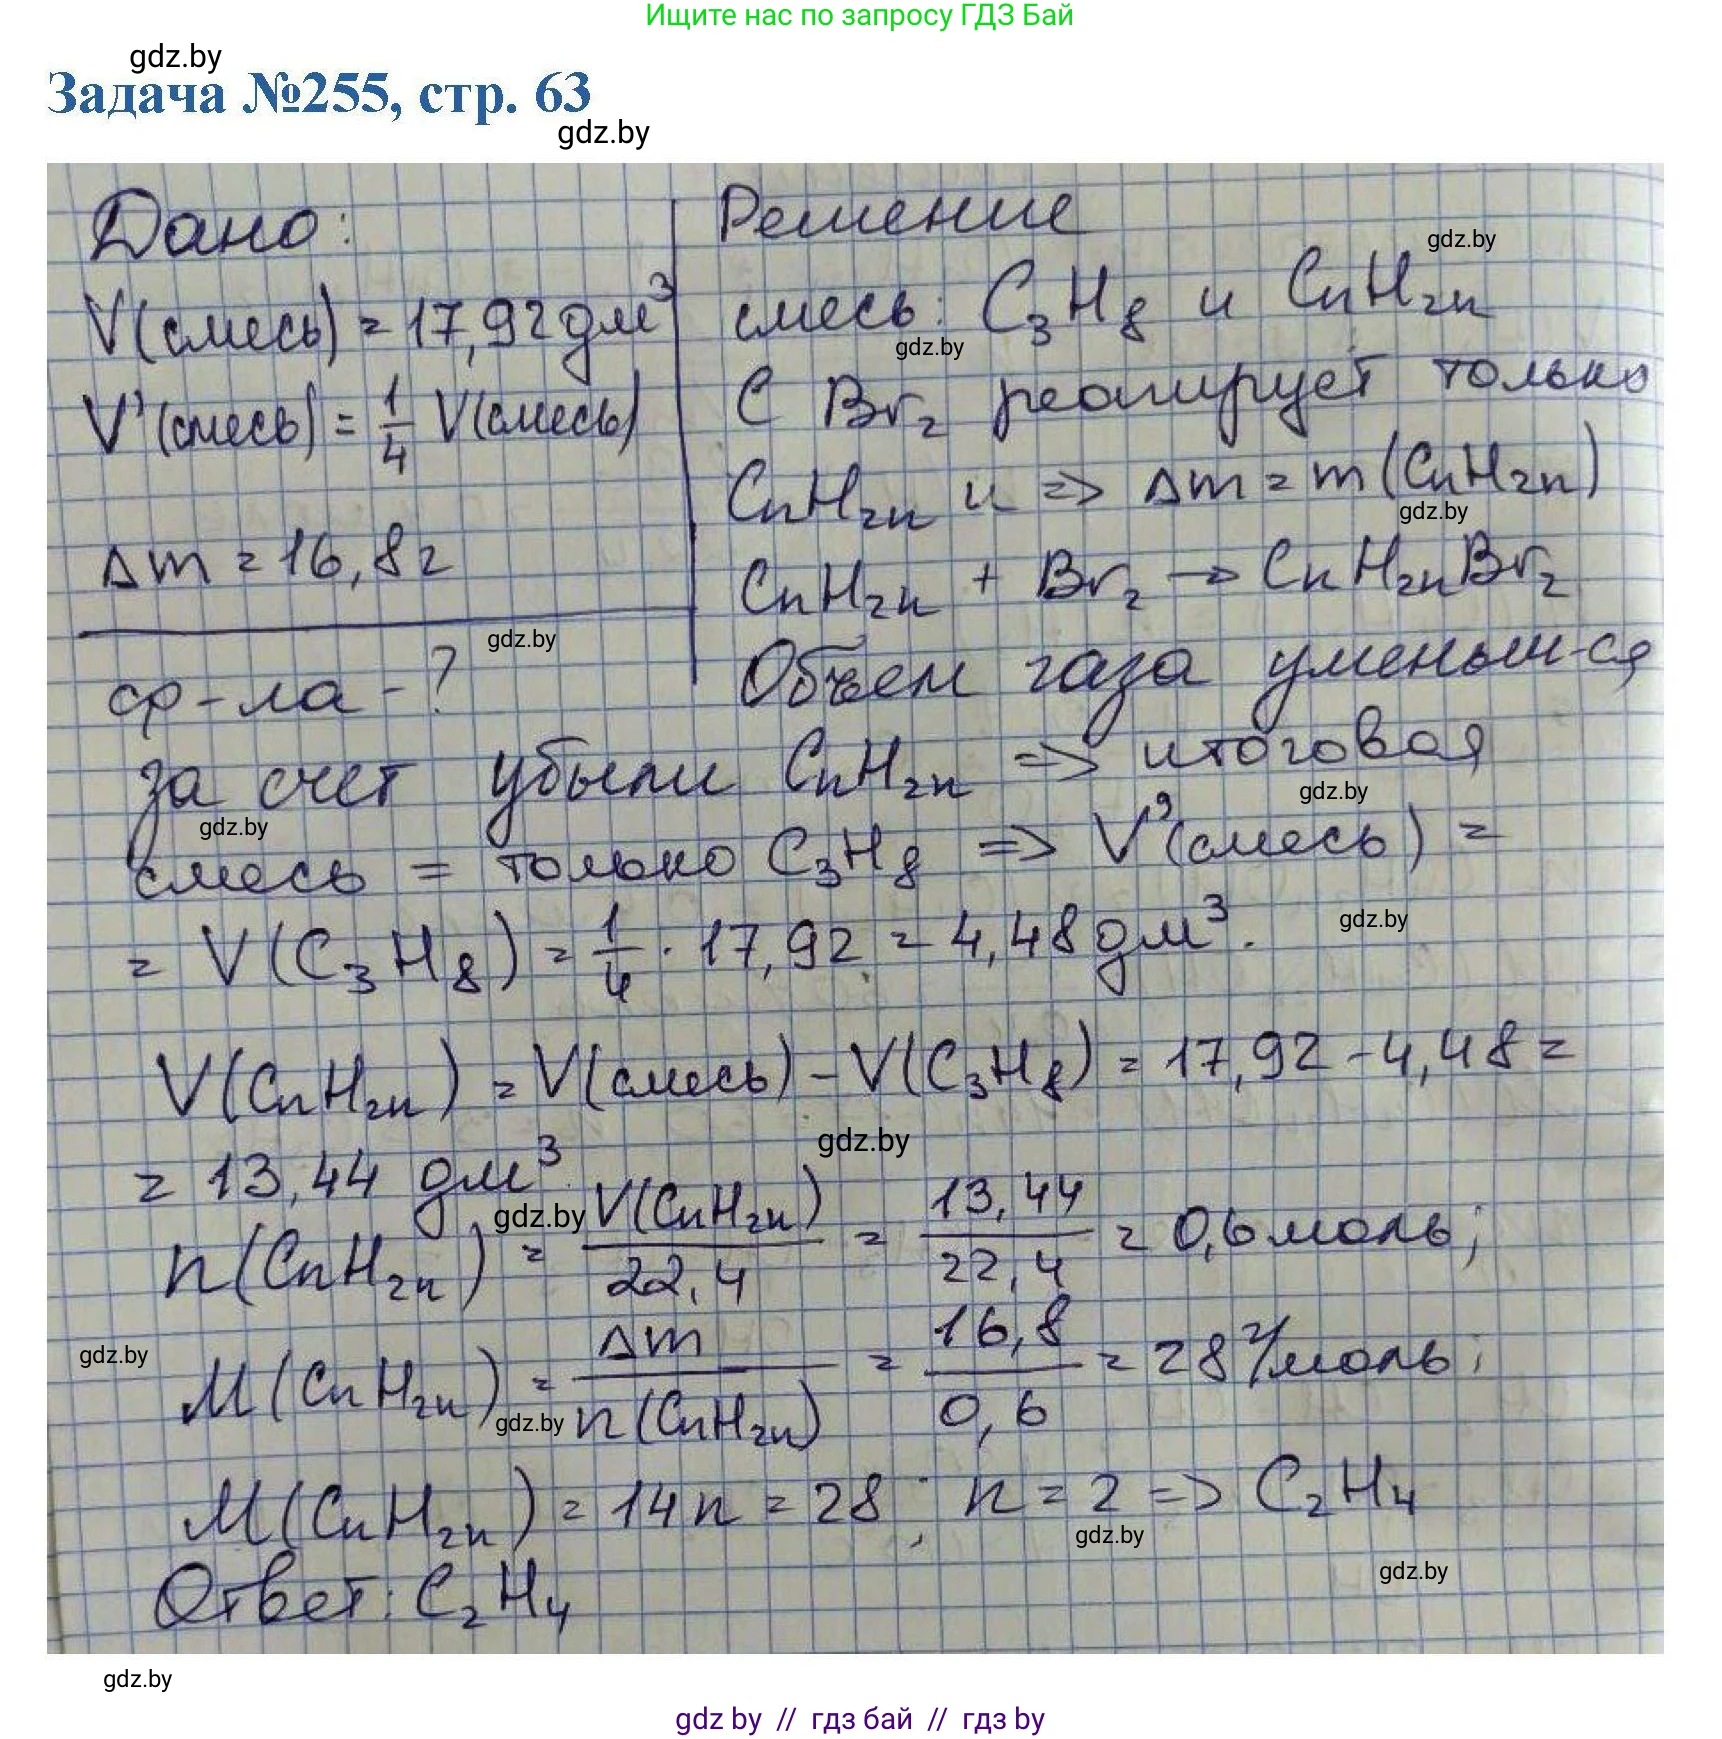 Ищите нас по запросу ГДЗ Бай
gdz.by
Задача №255, стр. 63
gdz.by
Дано:
V(смесь) = 17,92 дм³
V'(смесь) = 1/4 V(смесь)
Δm = 16,8 г
ф-ла - ?
Решение
gdz.by
смесь: C₃H₈ и CnH₂n
gdz.by
С Br₂ реагирует только
CnH₂n и => Δm = m(CnH₂n)
gdz.by
CnH₂n + Br₂ → CnH₂nBr₂
gdz.by
Объем газа уменьш-ся
за счет убыли CnH₂n => итоговая
gdz.by
gdz.by
смесь = только C₃H₈ => V'(смесь) =
= V(C₃H₈) = 1/4 · 17,92 = 4,48 дм³.
gdz.by
V(CnH₂n) = V(смесь) - V(C₃H₈) = 17,92 - 4,48 =
gdz.by
= 13,44 дм³
gdz.by
n(CnH₂n) = V(CnH₂n)/22,4 = 13,44/22,4 = 0,6 моль;
gdz.by
M(CnH₂n) = Δm/n(CnH₂n) = 16,8/0,6 = 28 г/моль;
gdz.by
M(CnH₂n) = 14n = 28; n = 2 => C₂H₄
gdz.by
gdz.by
Ответ: C₂H₄
gdz.by
gdz by // гдз бай // гдз by